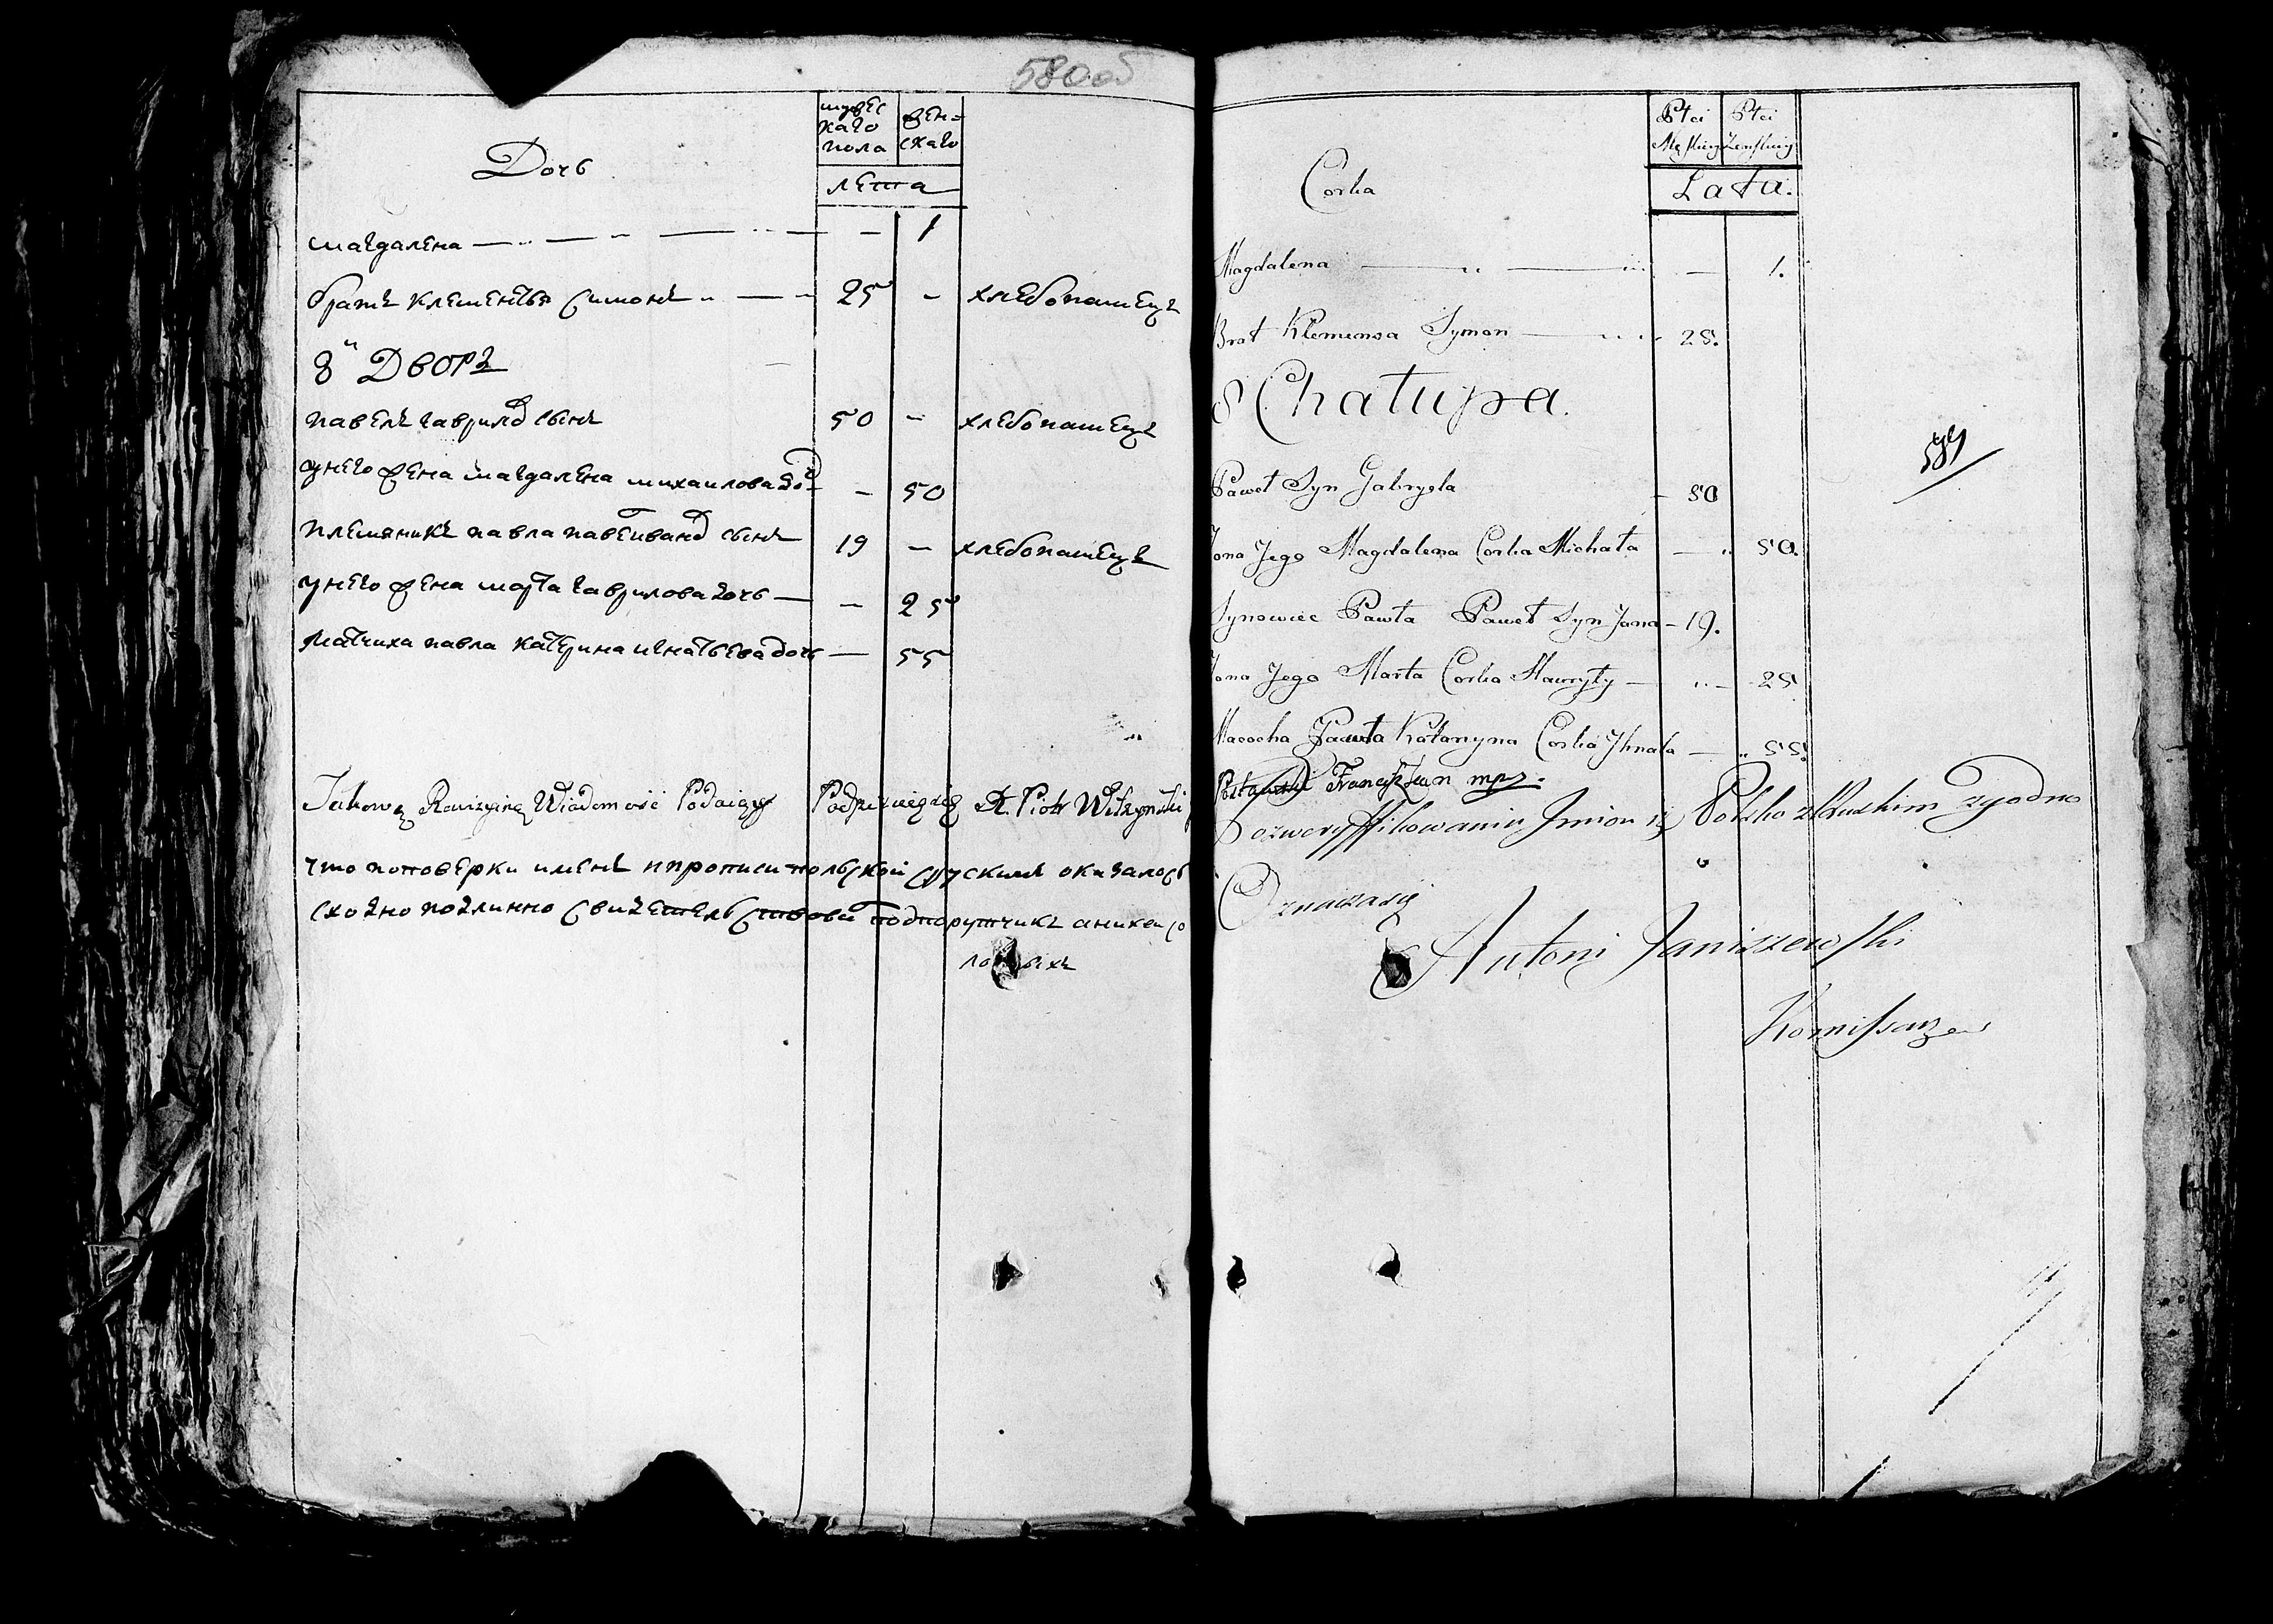 580об
мужескаго пола
женскаго
Дочь
лета
магдалена — 1
братъ клементья симонъ — 25 - хлебопашецъ
8й Дворъ
павелъ гаврилов сынъ 50 - хлебопашецъ
у него жена магдалена михаилова доч - 50
племяникъ павла павел иванов сынъ 19 - хлебопашецъ
у него жена марта гаврилова дочь - 25
Матчиха павла катерина игнатьева дочь — 55
Takową Rewizyiną Wiadomość Podaiąc Podpisuię się X. Piotr
что по поверки именъ и прописи польской с рускимъ оказалось
сходно подлинно свидетельствовал подпорутчикъ аникеи со
Płci Męskiey
Płci Żeńskiey
Corka
Lata.
Magdalena — 1.
Brat Klemensa Symon — 25.
8 Chałupa.
581
Paweł Syn Gabryela - 50
Żona Jego Magdalena Corka Michała — 50.
Synowiec Pawła Paweł Syn Jana - 19.
Żona Jego Marta Corka Hawryły — 25
Macocha Pawła Katarzyna Corka Ihnata — 55.
Franciszkan mpr.
Po zweryffikowaniu Imion iż Polsko z Ruskim zgodno
Oznacza się
Antoni Janiszewski
Komissarz